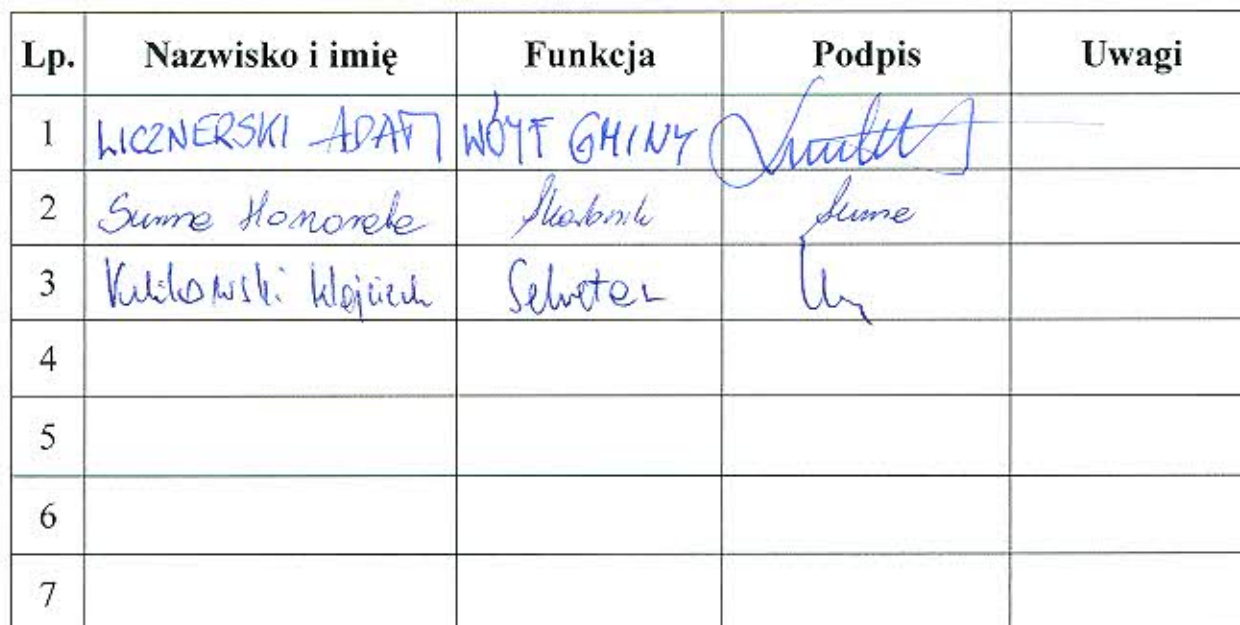 Lp. Nazwisko i imię Funkcja Podpis Uwagi
1 LICZNERSKI ADAM WÓJT GMINY
2 Suma Honorata Skarbnik
3 Kulikowski Wojciech Sekretarz
4
5
6
7